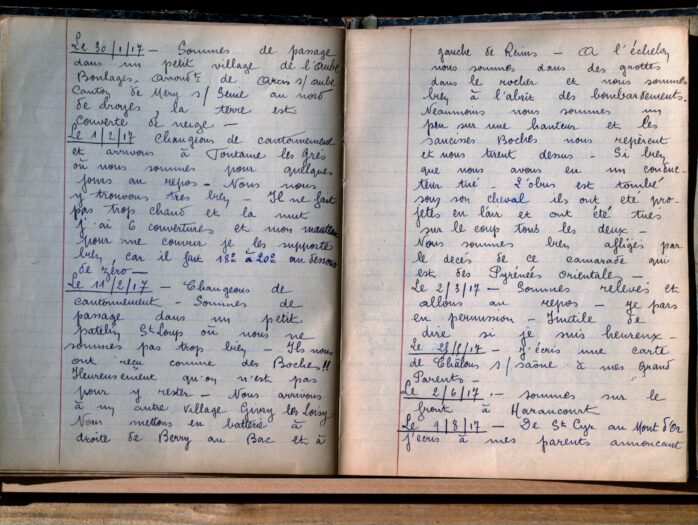 Le 30/1/17 — Sommes de passage
dans un petit village de l'Aube
Boulages, arrond^t de Arcis s/Aube
Canton de Mery s/ Seine au nord
de droyes, la terre est
couverte de neige —
Le 1/2/17 Changeons de cantonnement
et arrivons à Fontaine les Grés
où nous sommes pour quelques
jours au repos — Nous nous
y trouvons très bien — Il ne fait
pas trop chaud et la nuit
j'ai 6 couvertures et mon manteau
pour me couvrir je les supporte
bien, car il fait 18° à 20° au dessous
de zéro —
Le 11/2/17 — Changeons de
cantonnement — Sommes de
passage dans un petit
patelin St Loups où nous ne
sommes pas trop bien — Ils nous
ont reçu comme des Boches!!
Heureusement qu'on n'est pas
pour y rester — Nous arrivons
à un autre village Givry les Loisy
Nous mettons en batterie à
droite de Berry au Bac et à
gauche de Reims — A l'échelon
nous sommes dans des grottes
dans le rocher et nous sommes
bien à l'abrit des bombardements.
Neaumons nous sommes un
peu sur une hauteur et les
saucisses Boches nous repèrent
et nous tirent dessus — Si bien
que nous avons eu un conduc-
teur tué. L'obus est tombé
sous son cheval ils ont été pro-
jetés en l'air et ont été tués
sur le coup tous les deux —
Nous sommes bien affligés par
le décès de ce camarade qui
est des Pyrénées Orientales —
Le 2/3/17 — Sommes relevés et
allons au repos — je pars
en permission — Inutile de
dire si je suis heureux —
Le — j'écris une carte
de Châlons s/ saône à mes Grand
Parents —
Le 2/6/17 — sommes sur le
front à Harancourt
Le 9/8/17 — De St Cyr au Mont d'Or
j'écris à mes parents annonçant